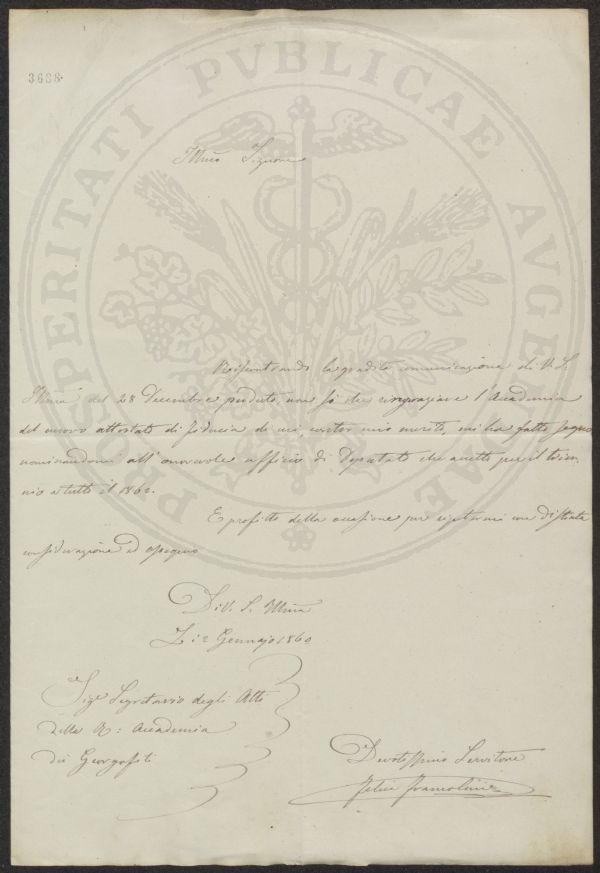 3688.
PROSPERITATI PVBLICAE AVGENDAE
Illmo Signore
Riscontrando la gradita comunicazione di V. S.
Illma del 28 Decembre perduto, non so che ringraziare l'Accademia
del nuovo attestato di fiducia di cui, oltre mio merito, mi ha fatto segno
nominandomi all'onorevole ufficio di Deputato che accetto per il trien-
nio a tutto il 1862.
E profitto della occasione per ripetermi con distinta
considerazione ed ossequio
Di V. S. Illma
Li 2 Gennajo 1860
Sigr Segretario degli Atti
della R: Accademia
dei Georgofili
Devotissimo Servitore
Felice Francolini